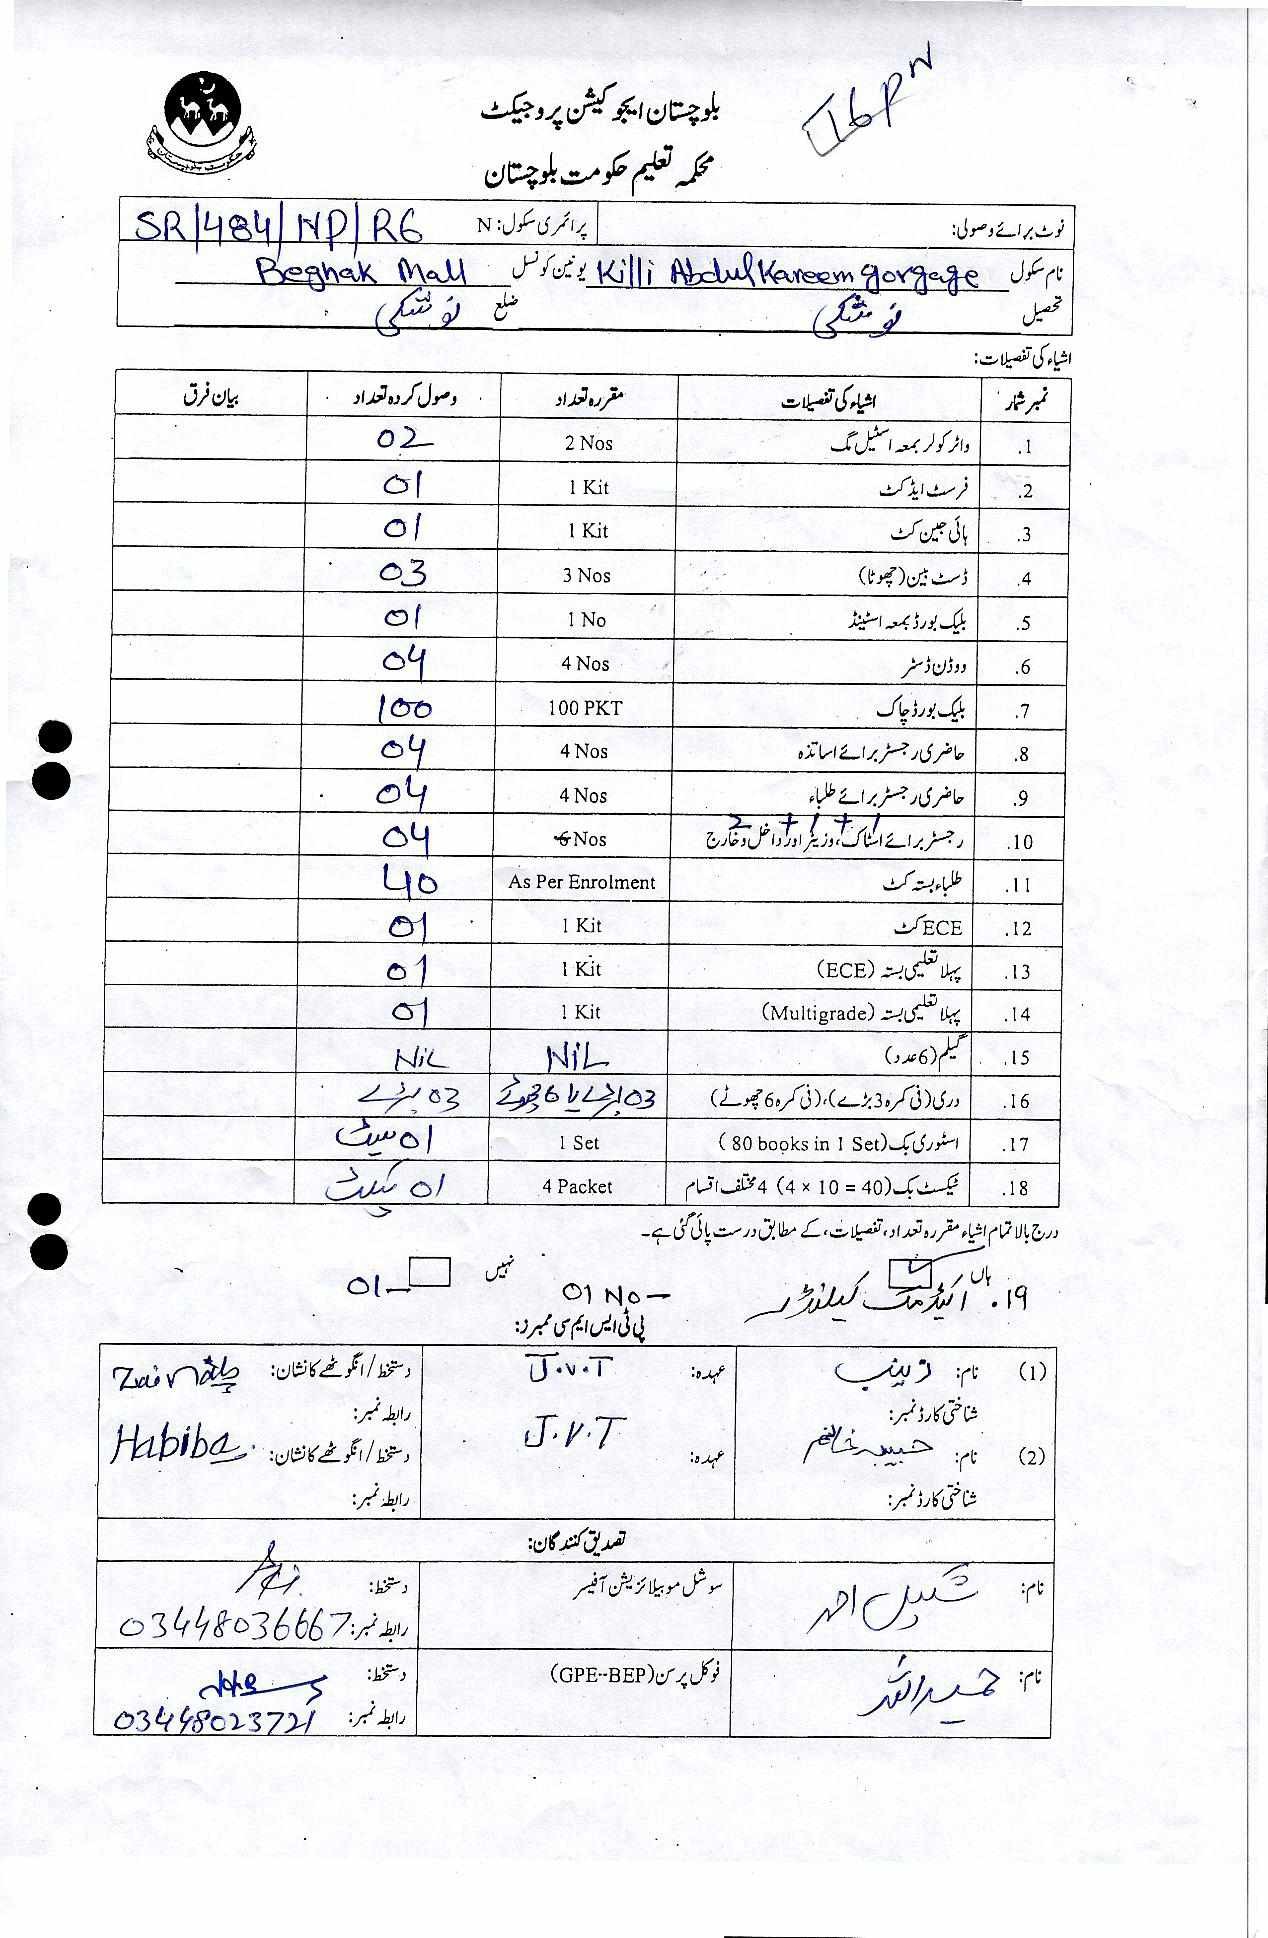 بلوچستان ایجوکیشن پروجیکٹ
محکمہ تعلیم حکومت بلوچستان
حکومت بلوچستان
نوٹ برائے وصولی: پرائمری سکول: N SR/484/NP/R6
نام سکول Killi Abdul Kareem gorgage یونین کونسل Beghak Mall
تحصیل نوشکی ضلع نوشکی
اشیاء کی تفصیلات:
نمبر شمار اشیاء کی تفصیلات مقررہ تعداد وصول کردہ تعداد بیان فرق
1. واٹر کولر بمعہ اسٹیل مگ 2 Nos 02
2. فرسٹ ایڈ کٹ 1 Kit 01
3. ہائی جین کٹ 1 Kit 01
4. ڈسٹ بین (چھوٹا) 3 Nos 03
5. بلیک بورڈ بمعہ اسٹینڈ 1 No 01
6. ووڈن ڈسٹر 4 Nos 04
7. بلیک بورڈ چاک 100 PKT 100
8. حاضری رجسٹر برائے اساتذہ 4 Nos 04
9. حاضری رجسٹر برائے طلباء 4 Nos 04
2 + 1 + 1
10. رجسٹر برائے اسٹاک، وزیٹر اور داخل و خارج 6 Nos 04
11. طلباء بستہ کٹ As Per Enrolment 40
12. ECE کٹ 1 Kit 01
13. پہلا تعلیمی بستہ (ECE) 1 Kit 01
14. پہلا تعلیمی بستہ (Multigrade) 1 Kit 01
15. گیلم (6 عدد) NIL NiL
16. دری (فی کمرہ 3 بڑے)، (فی کمرہ 6 چھوٹے) 03 بڑے یا 6 چھوٹے 03 بڑے
17. اسٹوری بک (80 books in 1 Set) 1 Set 01 سیٹ
18. ٹیکسٹ بک (4 × 10 = 40) 4 مختلف اقسام 4 Packet 01 پیکٹ
درج بالا تمام اشیاء مقررہ تعداد، تفصیلات، کے مطابق درست پائی گئی ہے۔
ہاں نہیں
۱۹. اکیڈمک کیلنڈر 01 No 01
پی ٹی ایس ایم سی ممبرز:
(1) نام: زینب عہدہ: J.V.T دستخط/انگوٹھے کا نشان:
شناختی کارڈ نمبر: رابطہ نمبر:
(2) نام: حبیبہ خانم عہدہ: J.V.T دستخط/انگوٹھے کا نشان: Habiba
شناختی کارڈ نمبر: رابطہ نمبر:
تصدیق کنندگان:
نام: شکیل احمد سوشل موبیلائزیشن آفیسر دستخط:
رابطہ نمبر: 03448036667
نام: حمید اللہ فوکل پرسن (GPE--BEP) دستخط:
رابطہ نمبر: 03448023721